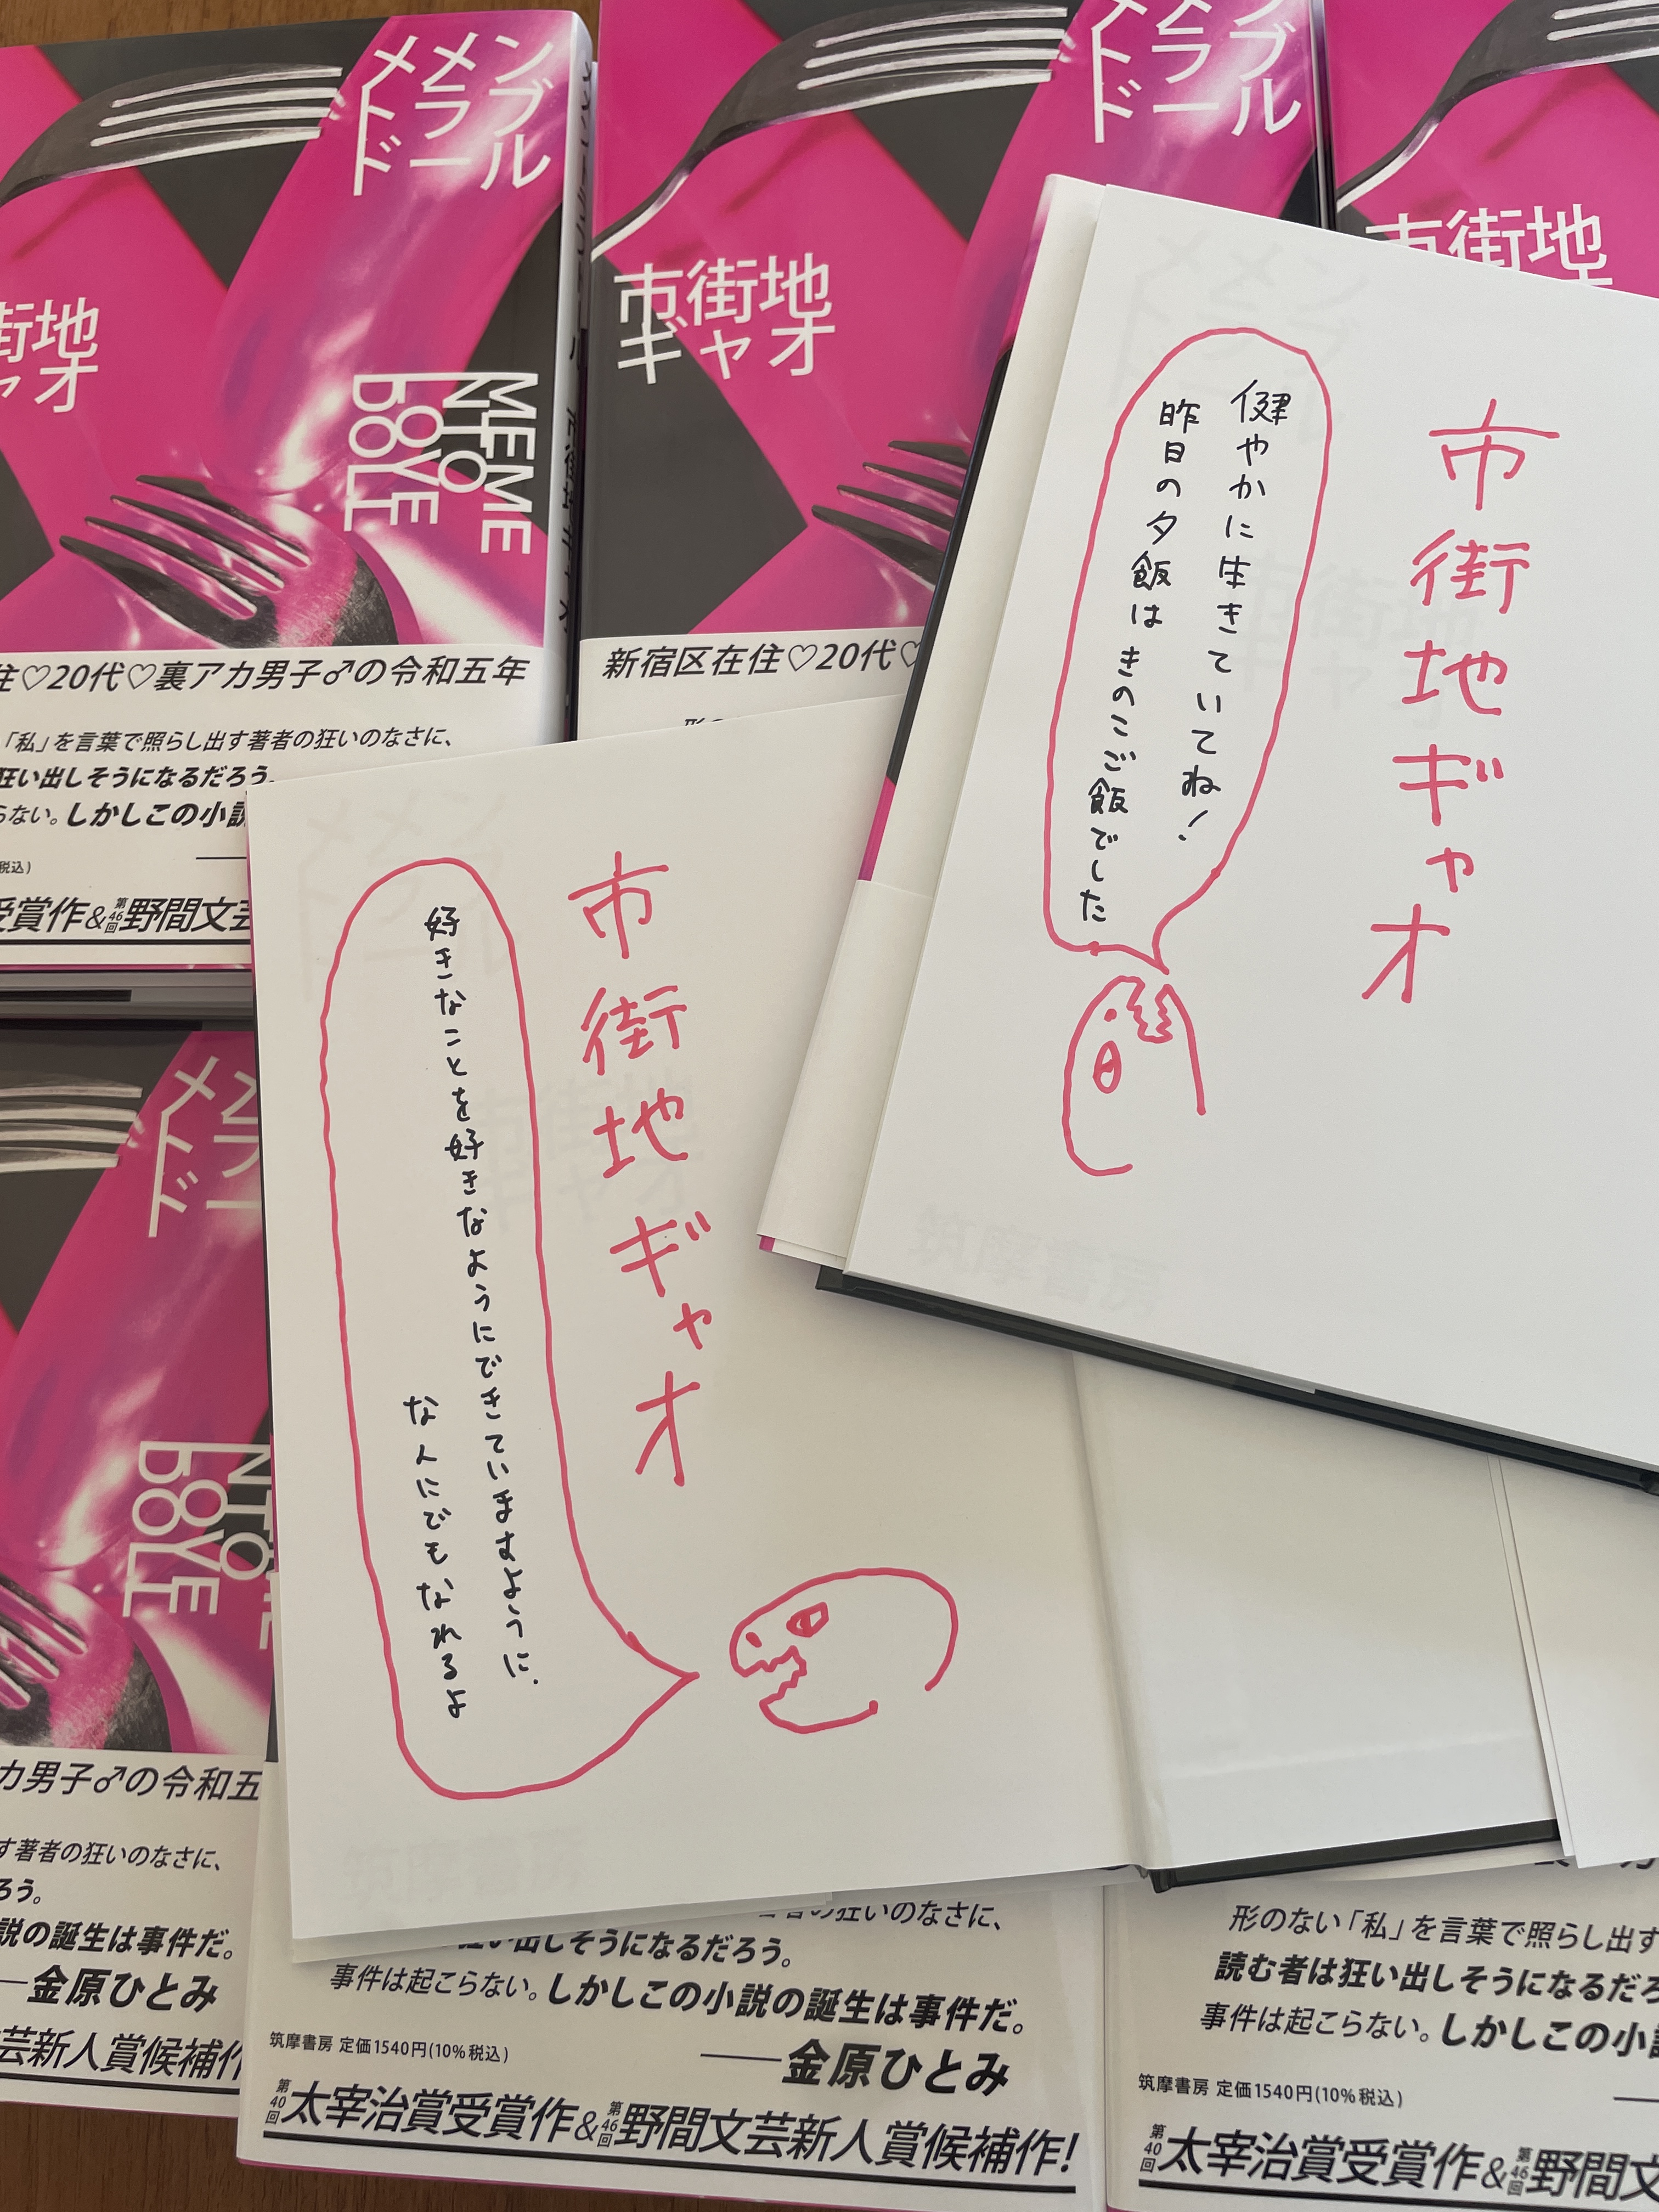 メメン
トラブ
ドール
街地
ャオ
MEME
NTO
LOVE
DOLL
住♡20代♡裏アカ男子♂の令和五年
「私」を言葉で照らし出す著者の狂いのなさに、
狂い出しそうになるだろう。
らない。しかしこの小説
税込)
受賞作&第46回野間文芸
メメン
トラブ
ドール
市街地
ギャオ
新宿区在住♡20代♡
市街地
市街地ギャオ
健やかに生きていてね!
昨日の夕飯はきのこご飯でした
市街地ギャオ
好きなことを好きなようにできていますように.
な人にでもなれるよ
筑摩書房
メ
ト
ド
NTO
LOVE
DOLL
カ男子♂の令和五
す著者の狂いのなさに、
ろう。
説の誕生は事件だ。
──金原ひとみ
芸新人賞候補作
者の狂いのなさに、
狂い出しそうになるだろう。
事件は起こらない。しかしこの小説の誕生は事件だ。
筑摩書房 定価1540円(10%税込)
──金原ひとみ
第40回太宰治賞受賞作&第46回野間文芸新人賞候補作!
形のない「私」を言葉で照らし出す
読む者は狂い出しそうになるだろ
事件は起こらない。しかしこの小説
筑摩書房 定価1540円(10%税込)
第40回太宰治賞受賞作&第46回野間文